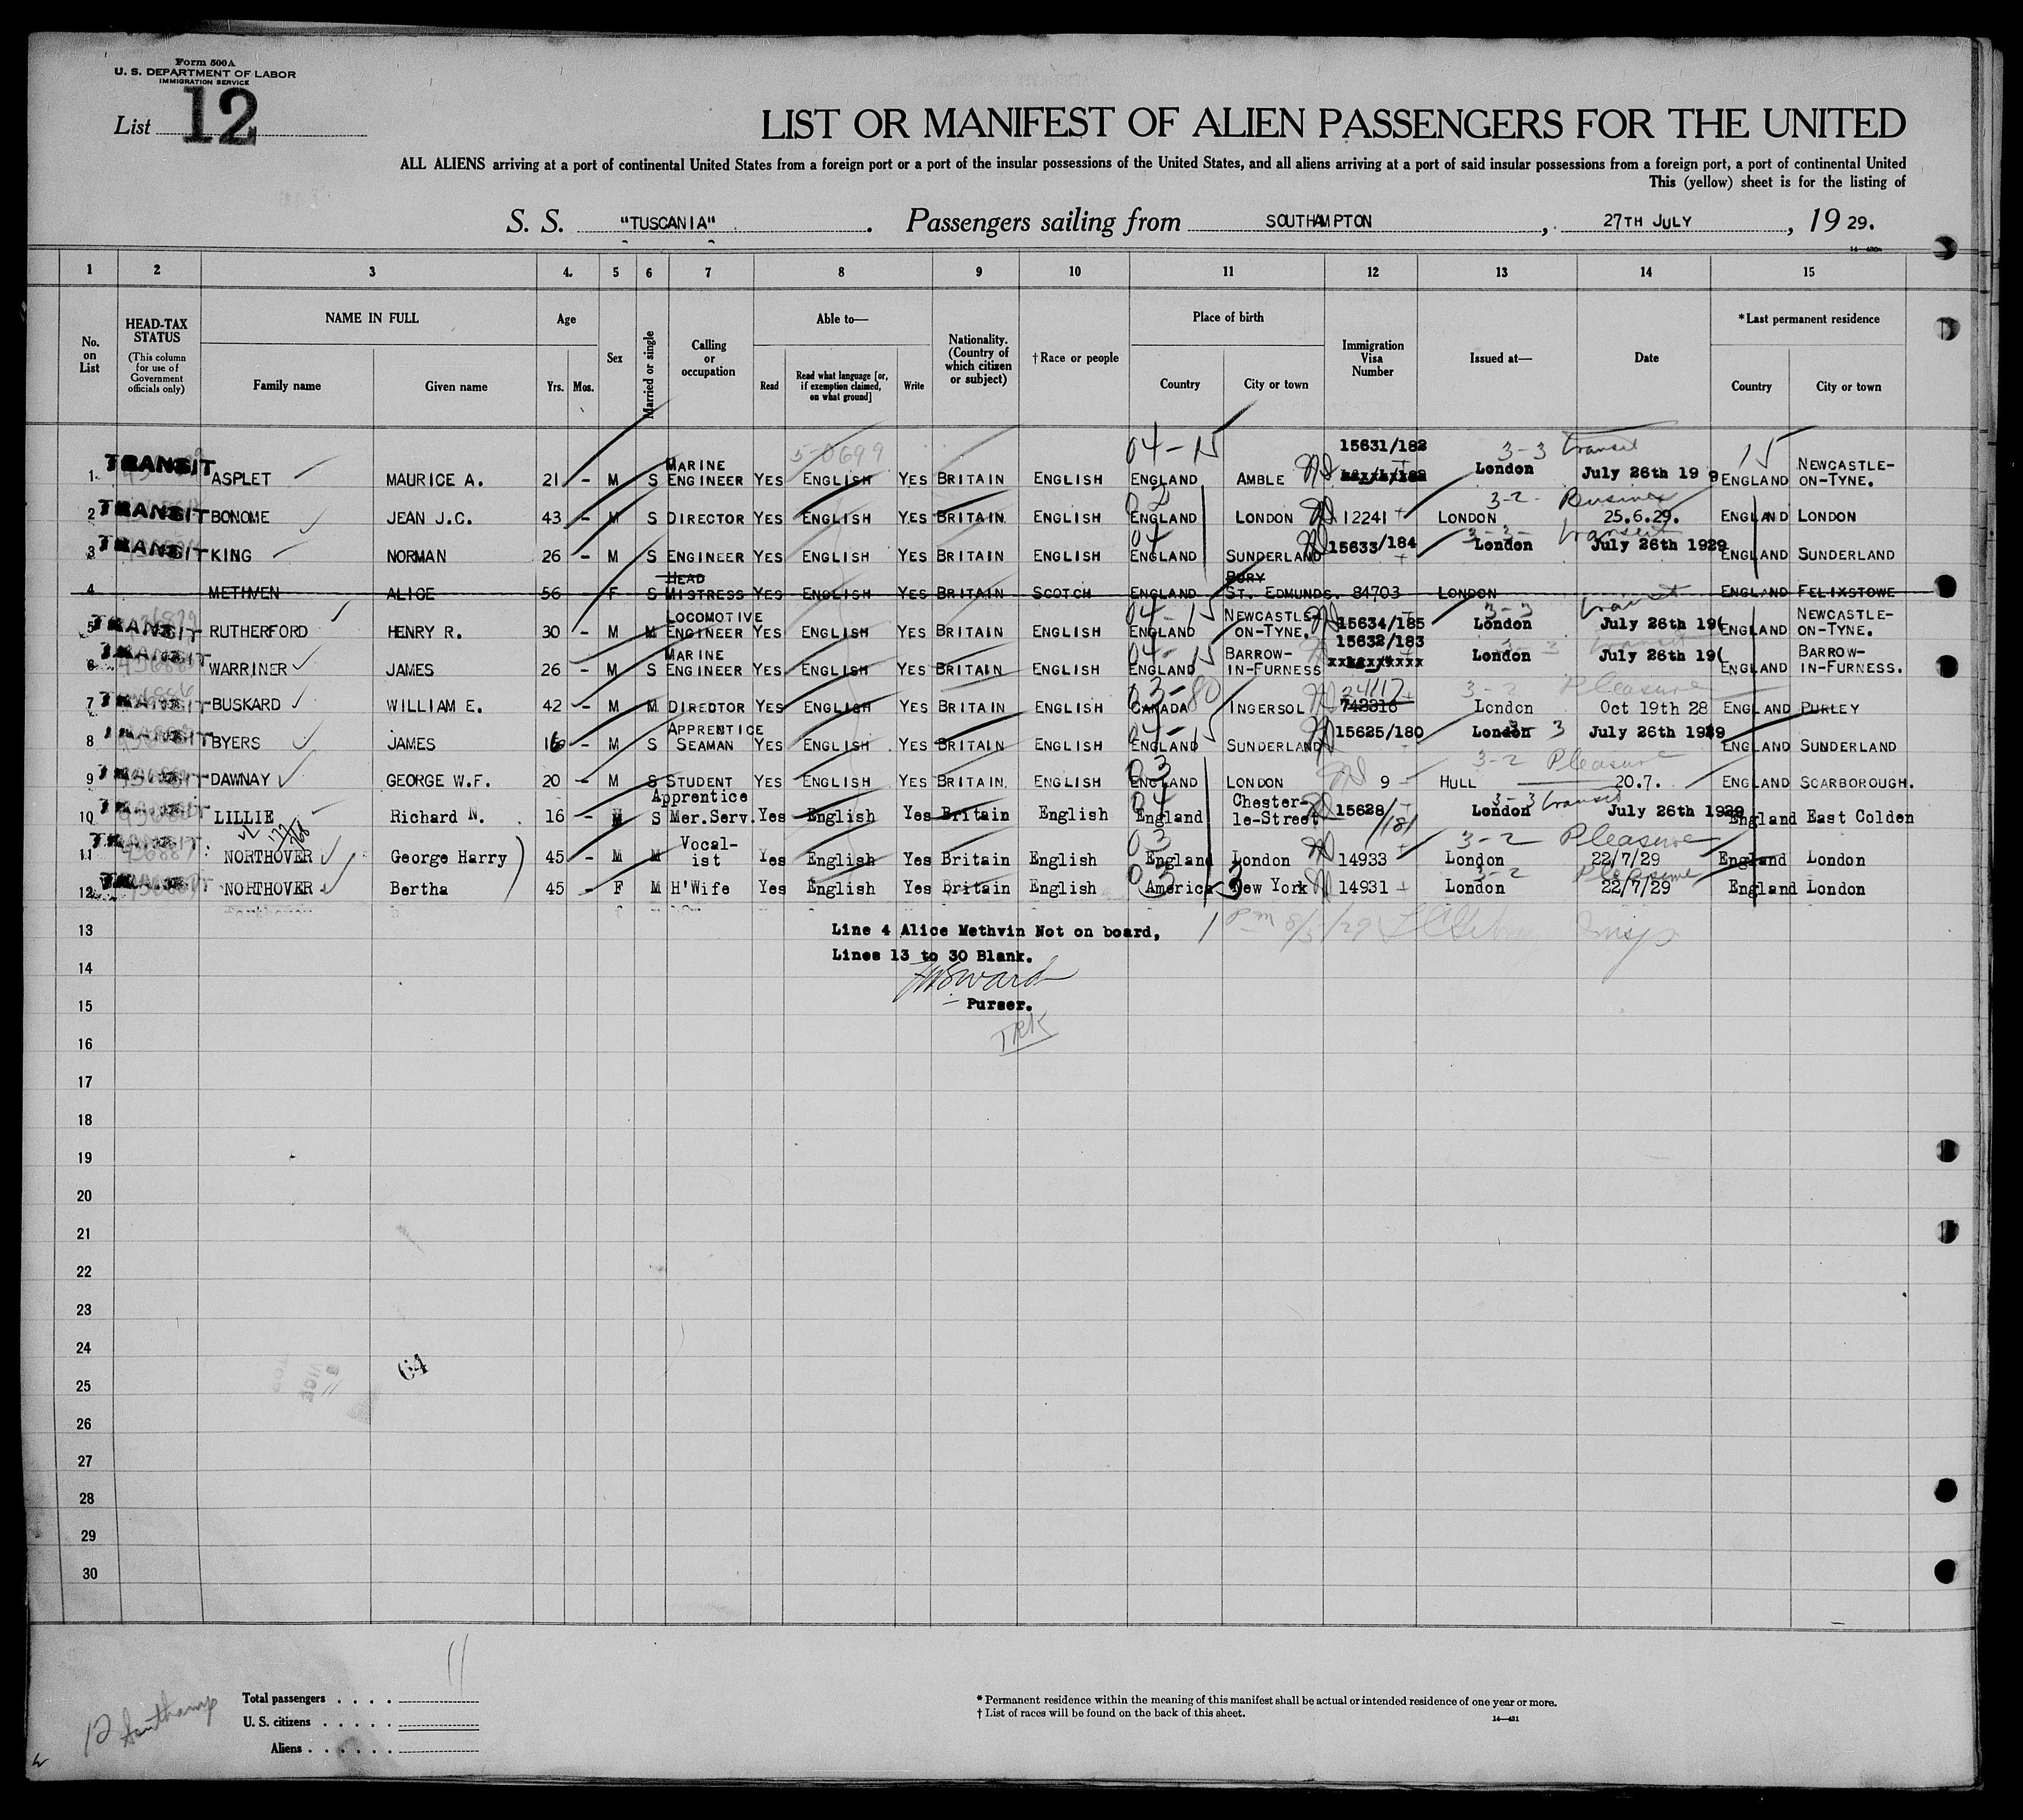 Form 500A
U. S. DEPARTMENT OF LABOR
IMMIGRATION SERVICE
List 12
LIST OR MANIFEST OF ALIEN PASSENGERS FOR THE UNITED
ALL ALIENS arriving at a port of continental United States from a foreign port or a port of the insular possessions of the United States, and all aliens arriving at a port of said insular possessions from a foreign port, a port of continental United
This (yellow) sheet is for the listing of
S. S. "TUSCANIA". Passengers sailing from SOUTHAMPTON, 27TH JULY, 19 29.
1 2 3 4. 5 6 7 8 9 10 11 12 13 14 15
No. on List
HEAD-TAX STATUS (This column for use of Government officials only)
NAME IN FULL Family name Given name
Age Yrs. Mos.
Sex
Married or single
Calling or occupation
Able to— Read Read what language [or, if exemption claimed, on what ground] Write
Nationality. (Country of which citizen or subject)
†Race or people
Place of birth Country City or town
Immigration Visa Number
Issued at—
Date
*Last permanent residence Country City or town
5-0699 04-15 15631/182 3-3 transit 15
1 TRANSIT ASPLET MAURICE A. 21 - M S MARINE ENGINEER YES ENGLISH YES BRITAIN ENGLISH ENGLAND AMBLE London July 26th 19 9 ENGLAND NEWCASTLE-ON-TYNE.
3-2 Business
2 TRANSIT BONOME JEAN J.C. 43 - M S DIRECTOR YES ENGLISH YES BRITAIN ENGLISH ENGLAND LONDON 12241 LONDON 25.6.29. ENGLAND LONDON
04 3-3- transit
3 TRANSIT KING NORMAN 26 - M S ENGINEER YES ENGLISH YES BRITAIN ENGLISH ENGLAND SUNDERLAND 15633/184 London July 26th 1929 ENGLAND SUNDERLAND
4 METHVEN ALICE 56 - F S HEAD MISTRESS YES ENGLISH YES BRITAIN SCOTCH ENGLAND BURY ST. EDMUNDS. 84703 LONDON ENGLAND FELIXSTOWE
04-15 3-3 transit
5 TRANSIT RUTHERFORD HENRY R. 30 - M M LOCOMOTIVE ENGINEER YES ENGLISH YES BRITAIN ENGLISH ENGLAND NEWCASTLE-ON-TYNE. 15634/185 London July 26th 19 ENGLAND NEWCASTLE-ON-TYNE.
04-15 3-3 transit
6 TRANSIT WARRINER JAMES 26 - M S MARINE ENGINEER YES ENGLISH YES BRITAIN ENGLISH ENGLAND BARROW-IN-FURNESS 15632/183 London July 26th 19 ENGLAND BARROW-IN-FURNESS.
03-80 24117 3-2 Pleasure
7 TRANSIT BUSKARD WILLIAM E. 42 - M M DIRECTOR YES ENGLISH YES BRITAIN ENGLISH CANADA INGERSOL 742316 London Oct 19th 28 ENGLAND PURLEY
04-15 3-3
8 TRANSIT BYERS JAMES 16 - M S APPRENTICE SEAMAN YES ENGLISH YES BRITAIN ENGLISH ENGLAND SUNDERLAND 15625/180 London July 26th 1929 ENGLAND SUNDERLAND
03 3-2 Pleasure
9 DAWNAY GEORGE W.F. 20 - M S STUDENT YES ENGLISH YES BRITAIN. ENGLISH ENGLAND LONDON 9 HULL 20.7. ENGLAND SCARBOROUGH.
04 3-3 transit
10 LILLIE Richard N. 16 - M S Apprentice Mer.Serv. Yes English Yes Britain English England Chester-le-Street 15628/181 London July 26th 1929 England East Colden
03 3-2 Pleasure
11 NORTHOVER George Harry 45 - M M Vocal-ist Yes English Yes Britain English England London 14933 London 22/7/29 England London
03 3-2 Pleasure
12 NORTHOVER Bertha 45 - F M H'Wife Yes English Yes Britain English America New York 14931 London 22/7/29 England London
13 Line 4 Alice Methvin Not on board,
Lines 13 to 30 Blank.
14
15 Purser.
16
17
18
19
20
21
22
23
24
64
25
26
27
28
29
30
11
Total passengers
U. S. citizens
Aliens
12 Southamp
* Permanent residence within the meaning of this manifest shall be actual or intended residence of one year or more.
† List of races will be found on the back of this sheet.
14—431